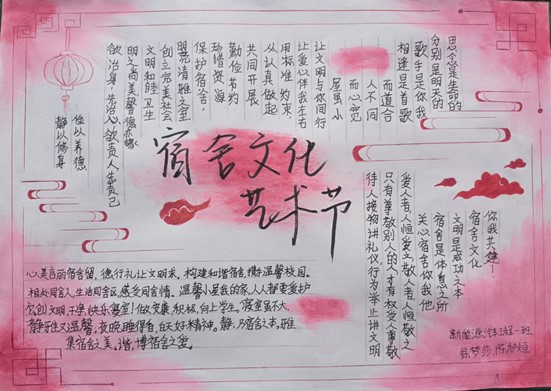 思念是生命的
分别是明天的
歌手是你我
相逢是首歌
而道合
人不同
而心宽
屋虽小
让文明与你同行
让爱心伴我左右
用标准约束
从认真做起
共同开展
勤俭节约
珍惜资源
保护宿舍,
明亮清雅之室
创立完美社会
文明和睦卫生
欲治身,先治心欲责人先责己
俭以养德
静以修身
宿舍文化
艺术节
你我共建
宿舍文化
文明是成功之本
宿舍是休息之所
关心宿舍你我他
爱人者人恒爱之敬人者人恒敬之
只有尊敬别人的人才有权受人尊敬
待人接物讲礼仪,行为举止讲文明
心美言丽宿舍留,德行礼让文明来,构建和谐宿舍,温馨校园。
相处同舍人,生活同舍区,感受同舍情。温馨小屋我的家,人人都要爱护
积极,向上学生。寝室虽不大,
静雅又温馨,夜晚睡得香,白天好精神。静,乃宿舍之本,雅
新能源汽车工程一班